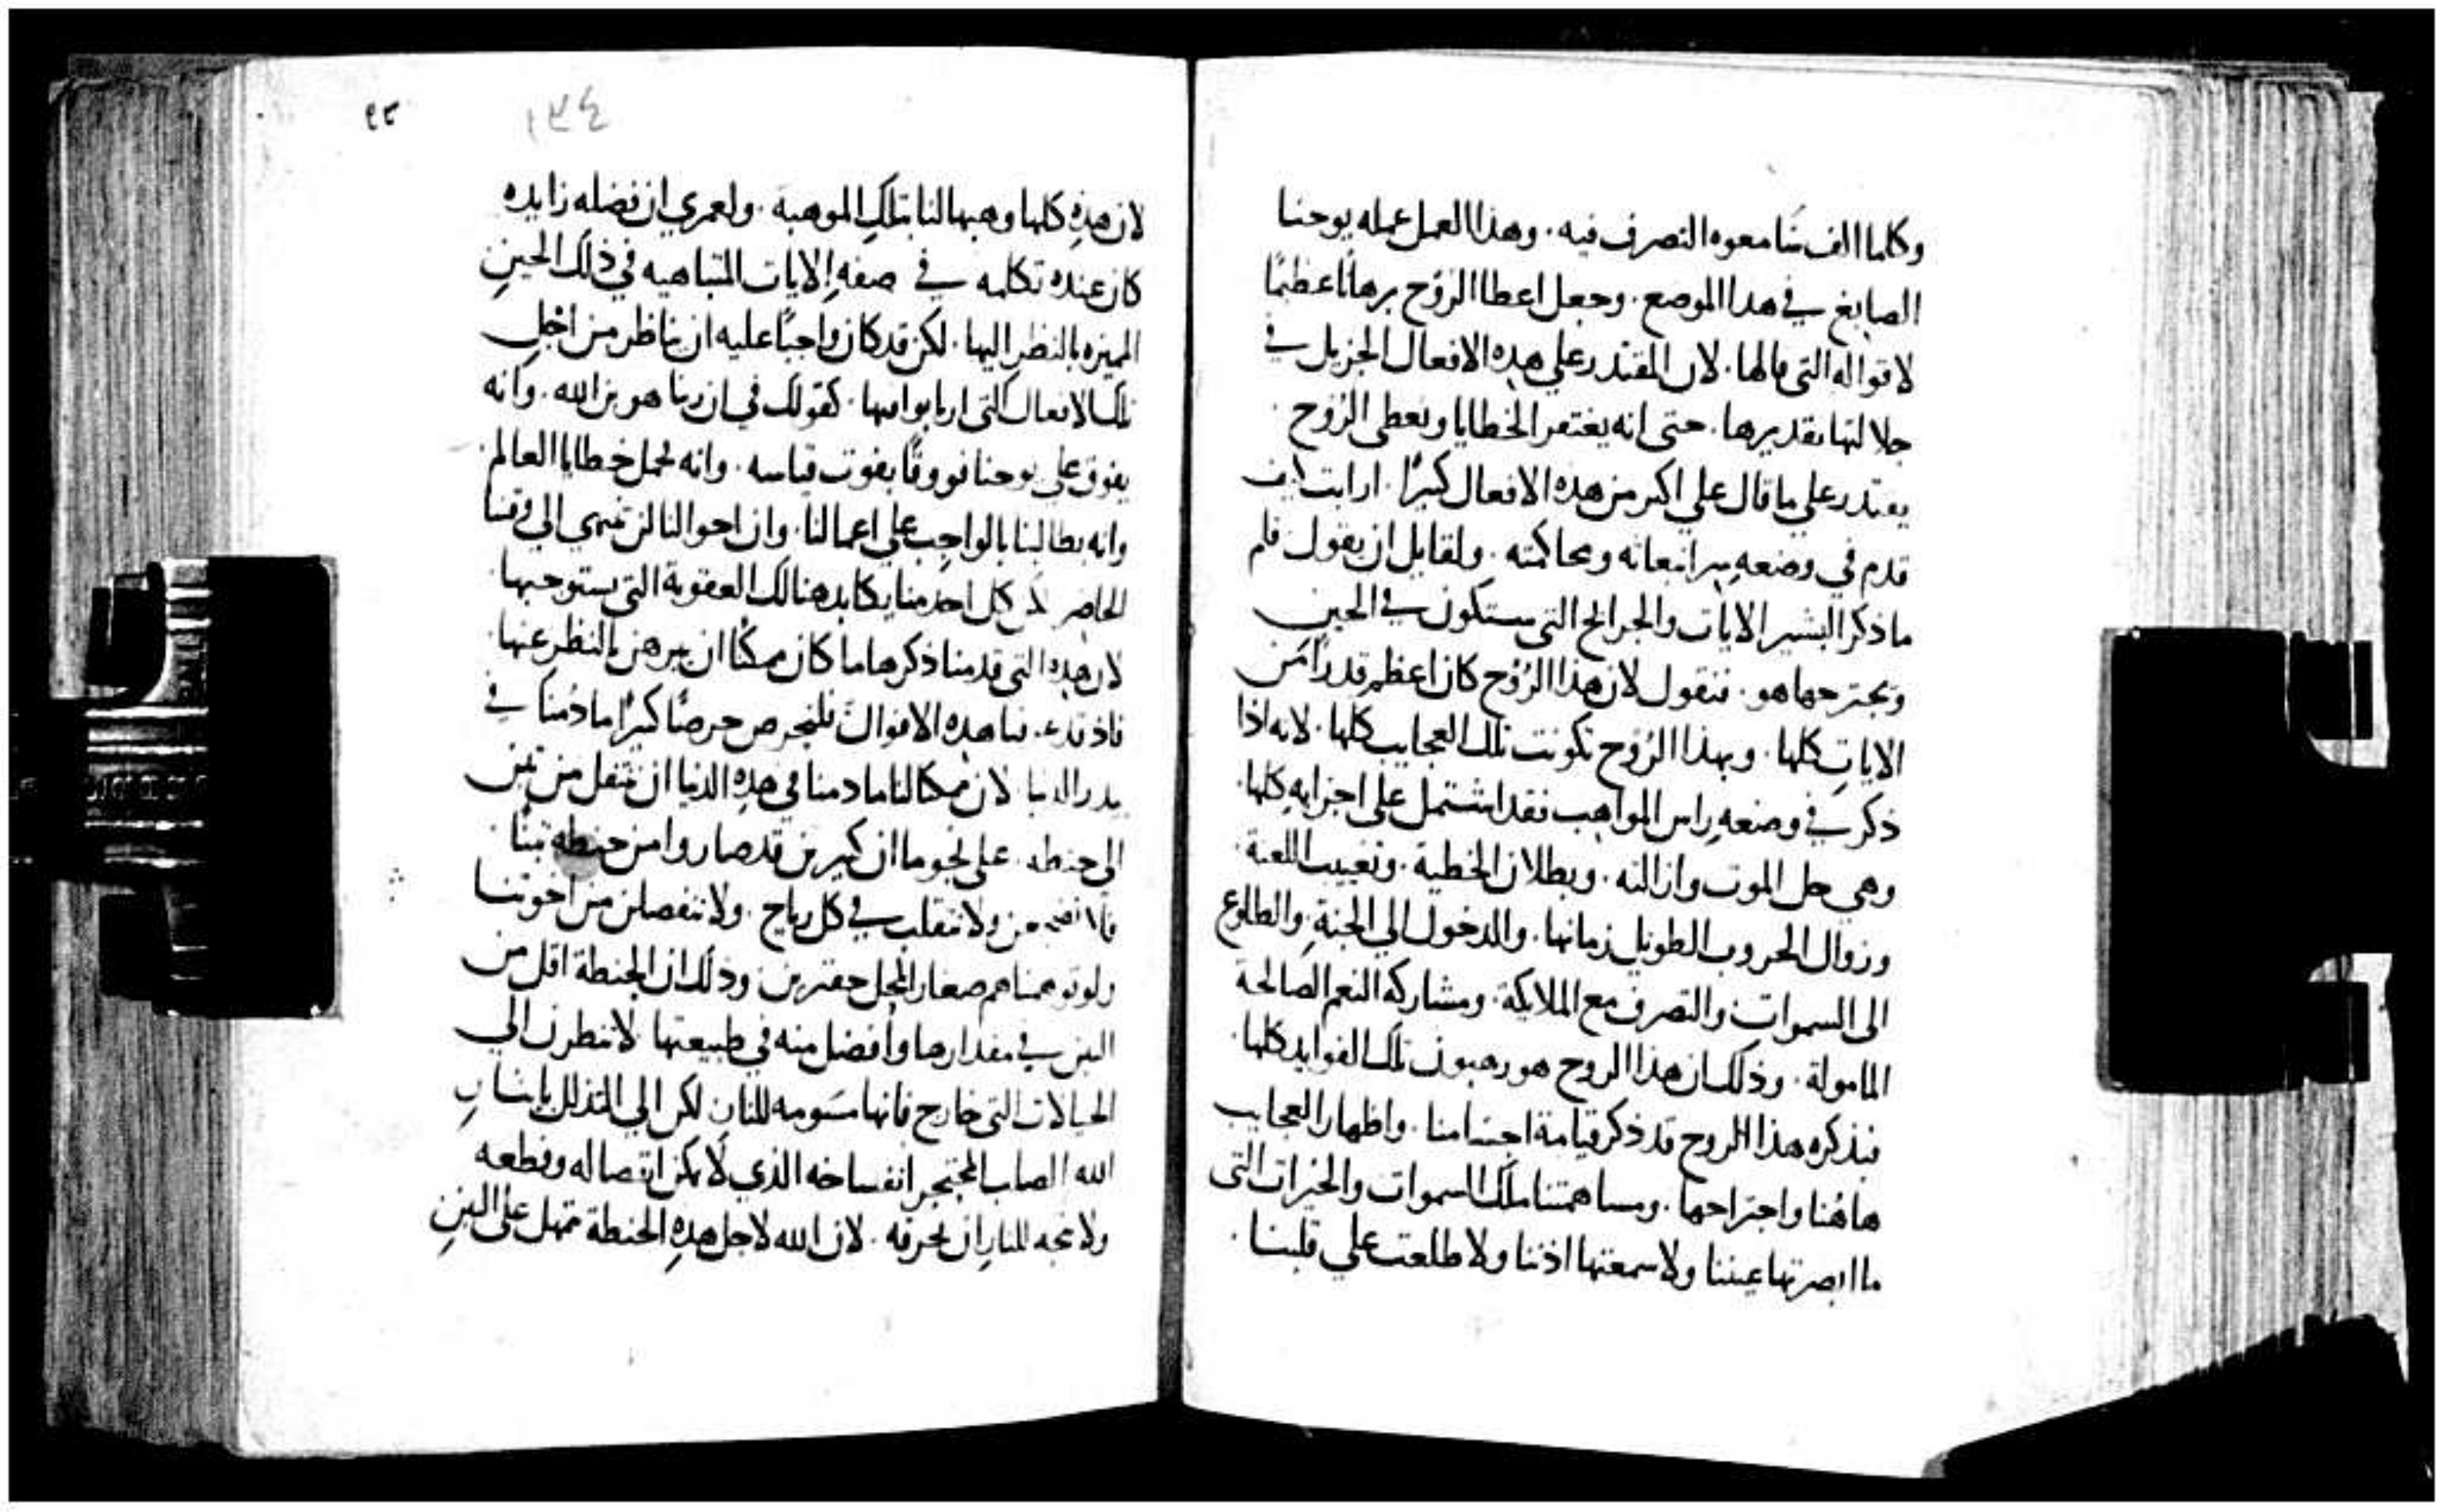 وكلما الف سامعوه التصرف فيه. وهذا العمل عمله يوحنا
الصابغ في هذا الموضع. وجعل اعطا الروح برهانا عظيما
لاقواله التي قالها. لان المقتدر على هذه الافعال الجزيل في
جلالتها تقديرها. حتى انه يغتفر الخطايا ويعطي الروح.
يقتدر على ما قال على اكبر من هذه الافعال كثيرًا. ارايت كيف
قدم في وضعه مرافعاته ومحاكمته. ولقايل ان يقول فلم
ما ذكر البشير الايات والجرايح التي ستكون في الحين
ويجترحها هو. فنقول لان هذا الروح كان اعظم قدرًا من
الايات كلها. وبهذا الروح تكونت تلك العجايب كلها. لانه اذا
ذكر في وضعه راس المواهب فقد اشتمل على اجزايه كلها.
وهي حل الموت وازالته. وبطلان الخطية. وتغييب اللعنة.
وزوال الحروب الطويل زمانها. والدخول الى الجنة. والطلوع
الى السموات والتصرف مع الملايكة. ومشاركة النعم الصالحة
المامولة. وذلك ان هذا الروح هو رهبون تلك الفوايد كلها.
فبذكره هذا الروح قد ذكر قيامة اجسامنا. واظهار العجايب
هاهنا واجتراحها. ومساهمتنا ملك السموات والخيرات التي
ما ابصرتها عيننا ولا سمعتها اذننا ولا طلعت على قلبنا.
٩٢
١٣٤
لان هذه كلها وهبها لنا بتلك الموهبة. ولعمري ان فضله زايده
كان عنده تكلمه في صفه الايات المتباهيه في ذلك الحين
المميزه بالنظر اليها. لكن قد كان واجبًا عليه ان يناظر من اجل
تلك الافعال التي ارتابوا فيها. كقولك في ان ربنا هو بن الله. وانه
يفوق على يوحنا فووقًا يفوت قياسه. وانه يحمل خطايا العالم.
وانه يطالبنا بالواجب على اعمالنا. وان احوالنا لن تنتهي الى وقتنا
الحاضر كل احد منا يكابد هنالك العقوبة التي يستوجبها
لان هذه التي قدمنا ذكرها ما كان ممكنًا ان يبرهن بالنظر عنها.
فاذ قد هذه الاقوال فلنحرص حرصًا كثيرًا ما دمنا في
بيدر الدنيا. لان ممكنا لنا ما دمنا في هذه الدنيا ان ننتقل من تبن
الى حنطه. على نحو ما ان كثيرين قد صاروا من حنطه تبنًا.
ولا نتقلب في كل رياح. ولا ننفصلن من اخوتنا
ولو توهمناهم صغار المحل حقيرين وذلك ان الحنطة اقل من
التبن في مقدارها وافضل منه في طبيعتها. لا ننظرن الى
الخيالات التي خارج فانها مسومه للنار لكن الى التذلل بايشار
الله الصلب المحتجر انفساخه الذي لا يمكن انفصاله وقطعه
ولا يتجه للنار ان تحرقه. لان الله لاجل هذه الحنطة تمهل على التبن